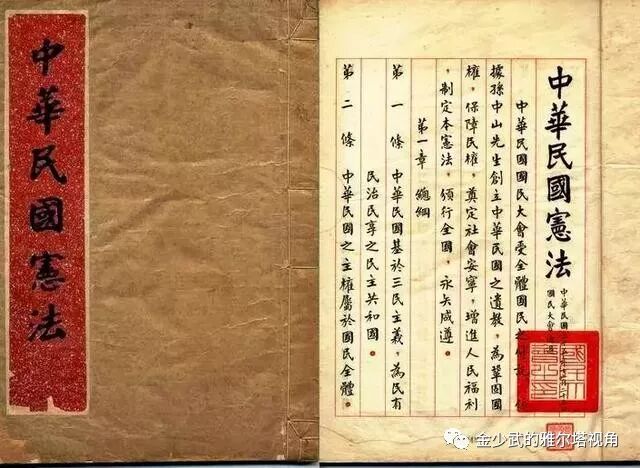 中華民國憲法
中華民國憲法
中華民國
國民大會
中華民國國民大會受全體國民之付託,依
據孫中山先生創立中華民國之遺教,為鞏固國
權,保障民權,奠定社會安寧,增進人民福利
,制定本憲法,頒行全國,永矢咸遵。
第一章 總綱
第一條 中華民國基於三民主義,為民有
民治民享之民主共和國。
第二條 中華民國之主權屬於國民全體。
金少武的雅尔塔视角